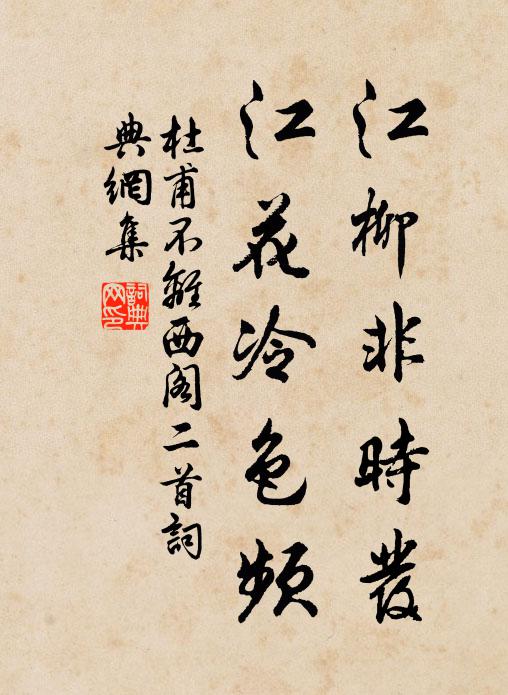 江柳非時發
江花冷色頻
杜甫不離西閣二首詞
典網集
詞典
网印